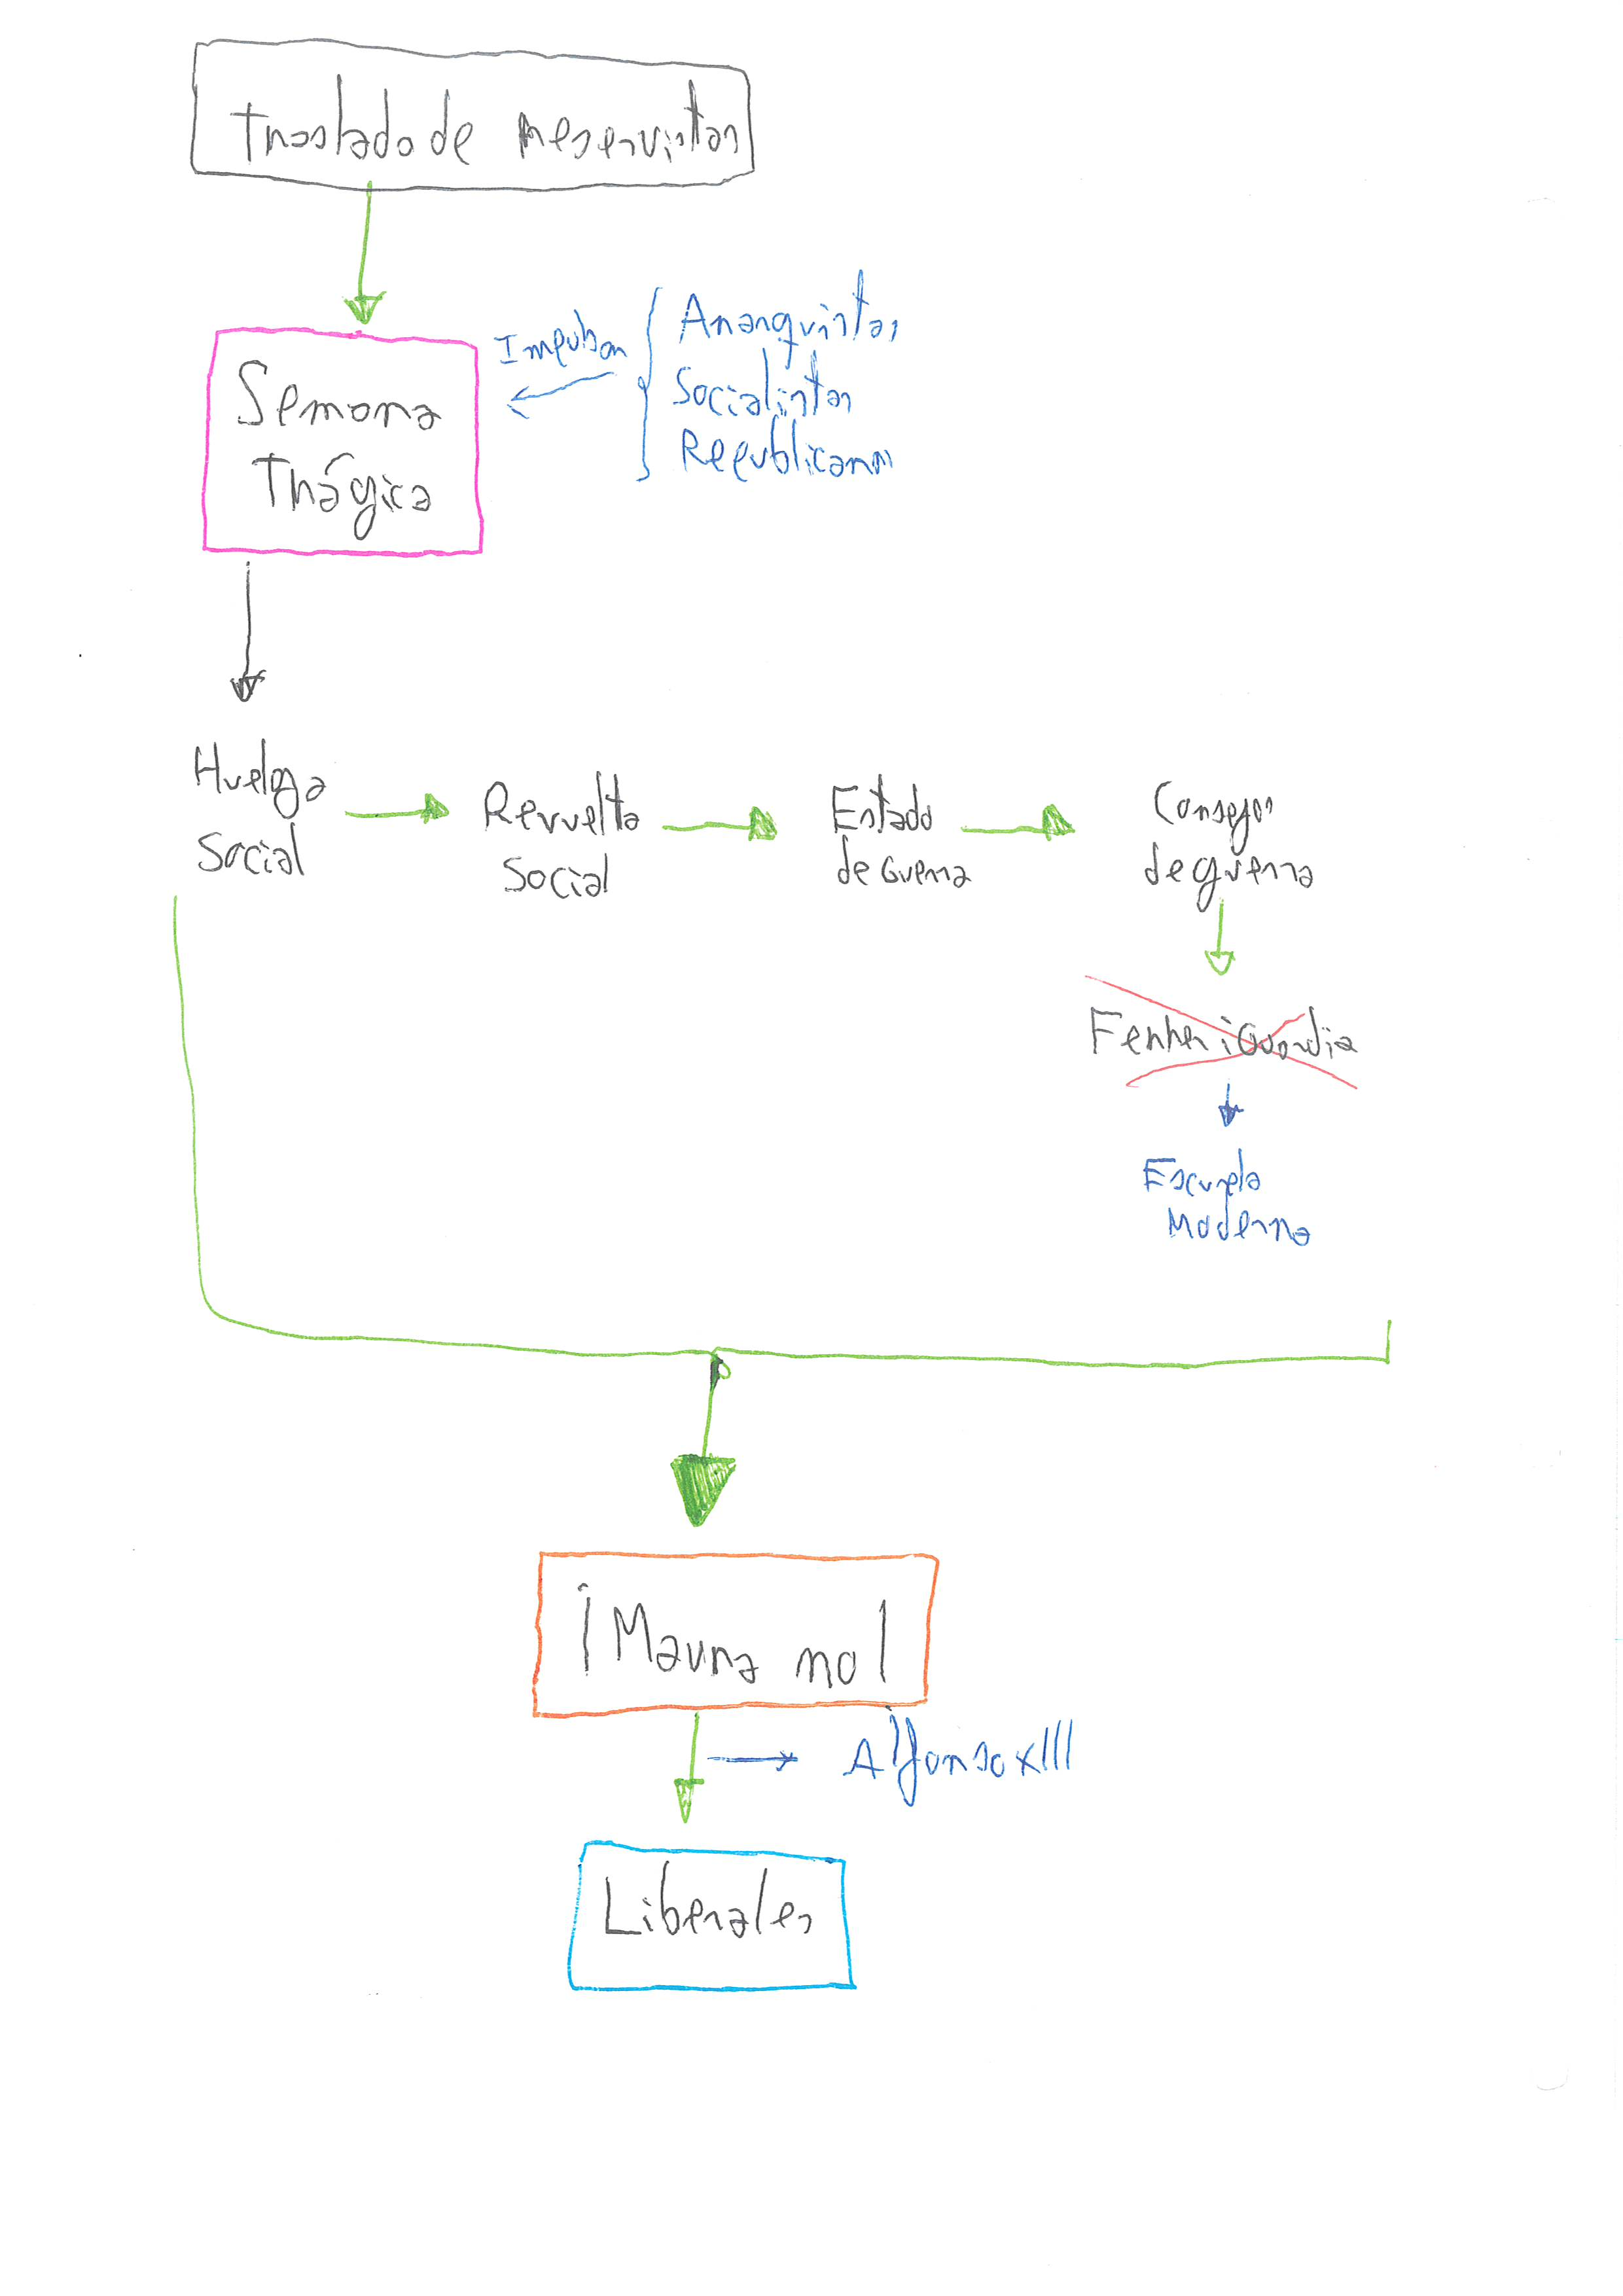 Traslado de reservistas
Impulsan
Anarquistas
Socialistas
Republicanos
Semana
Trágica
Huelga
Social
Revuelta
Social
Estado
de Guerra
Consejos
de guerra
Ferrer i Guardia
Escuela
Moderna
¡Maura no!
Alfonso XIII
Liberales